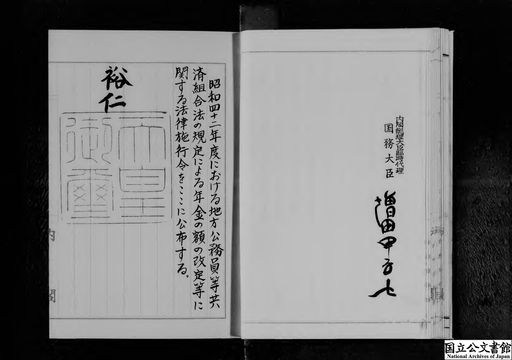 昭和四十二年度における地方公務員等共
済組合法の規定による年金の額の改定等に
関する法律施行令をここに公布する。
裕仁
天皇
御璽
内閣
内閣総理大臣臨時代理
国務大臣
増田甲子七
国立公文書館
National Archives of Japan